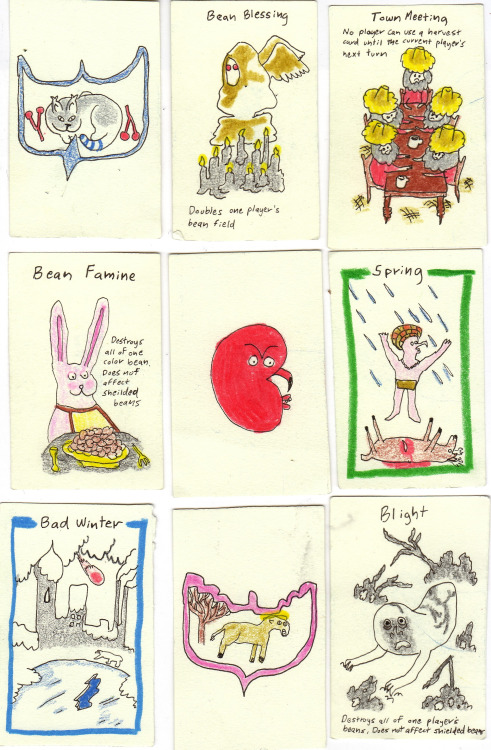 Bean Blessing
Doubles one player's
bean field
Town Meeting
No player can use a harvest
card until the current player's
next turn
Bean Famine
Destroys
all of one
color bean.
Does not
affect
sheilded
beans
Spring
Bad Winter
Blight
Destroys all of one player's
beans. Does not affect shielded beans